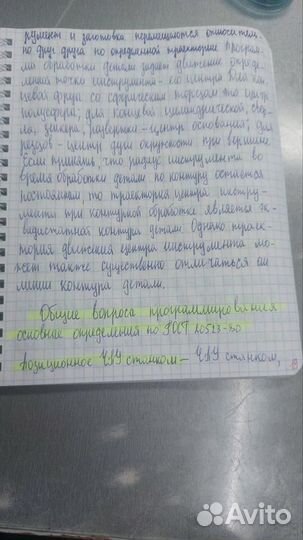 румент и заготовка перемещаются относитель-
но друг друга по определенной траектории Програм-
мы обработки детали задают движение опреде-
ленной точки инструмента - его центра Для кон-
цевой фрезы со сферическим торцом это центр
полусферы; для концевой цилиндрической, свер-
ла, зенкера, развертки - центр основания; для
резцов - центр дуги окружности при вершине
Если принять, что радиус инструмента во
время обработки детали по контуру остаётся
постоянным то траектория центра инстру-
мента при контурной обработке является эк-
видистантной контуру детали. Однако траек-
тория движения центра инструмента мо-
жет также существенно отличаться от
линии контура детали.
Общие вопроса программирования
основные определения по ГОСТ 20523-80
Позиционное ЧПУ станком - ЧПУ станком,
Avito